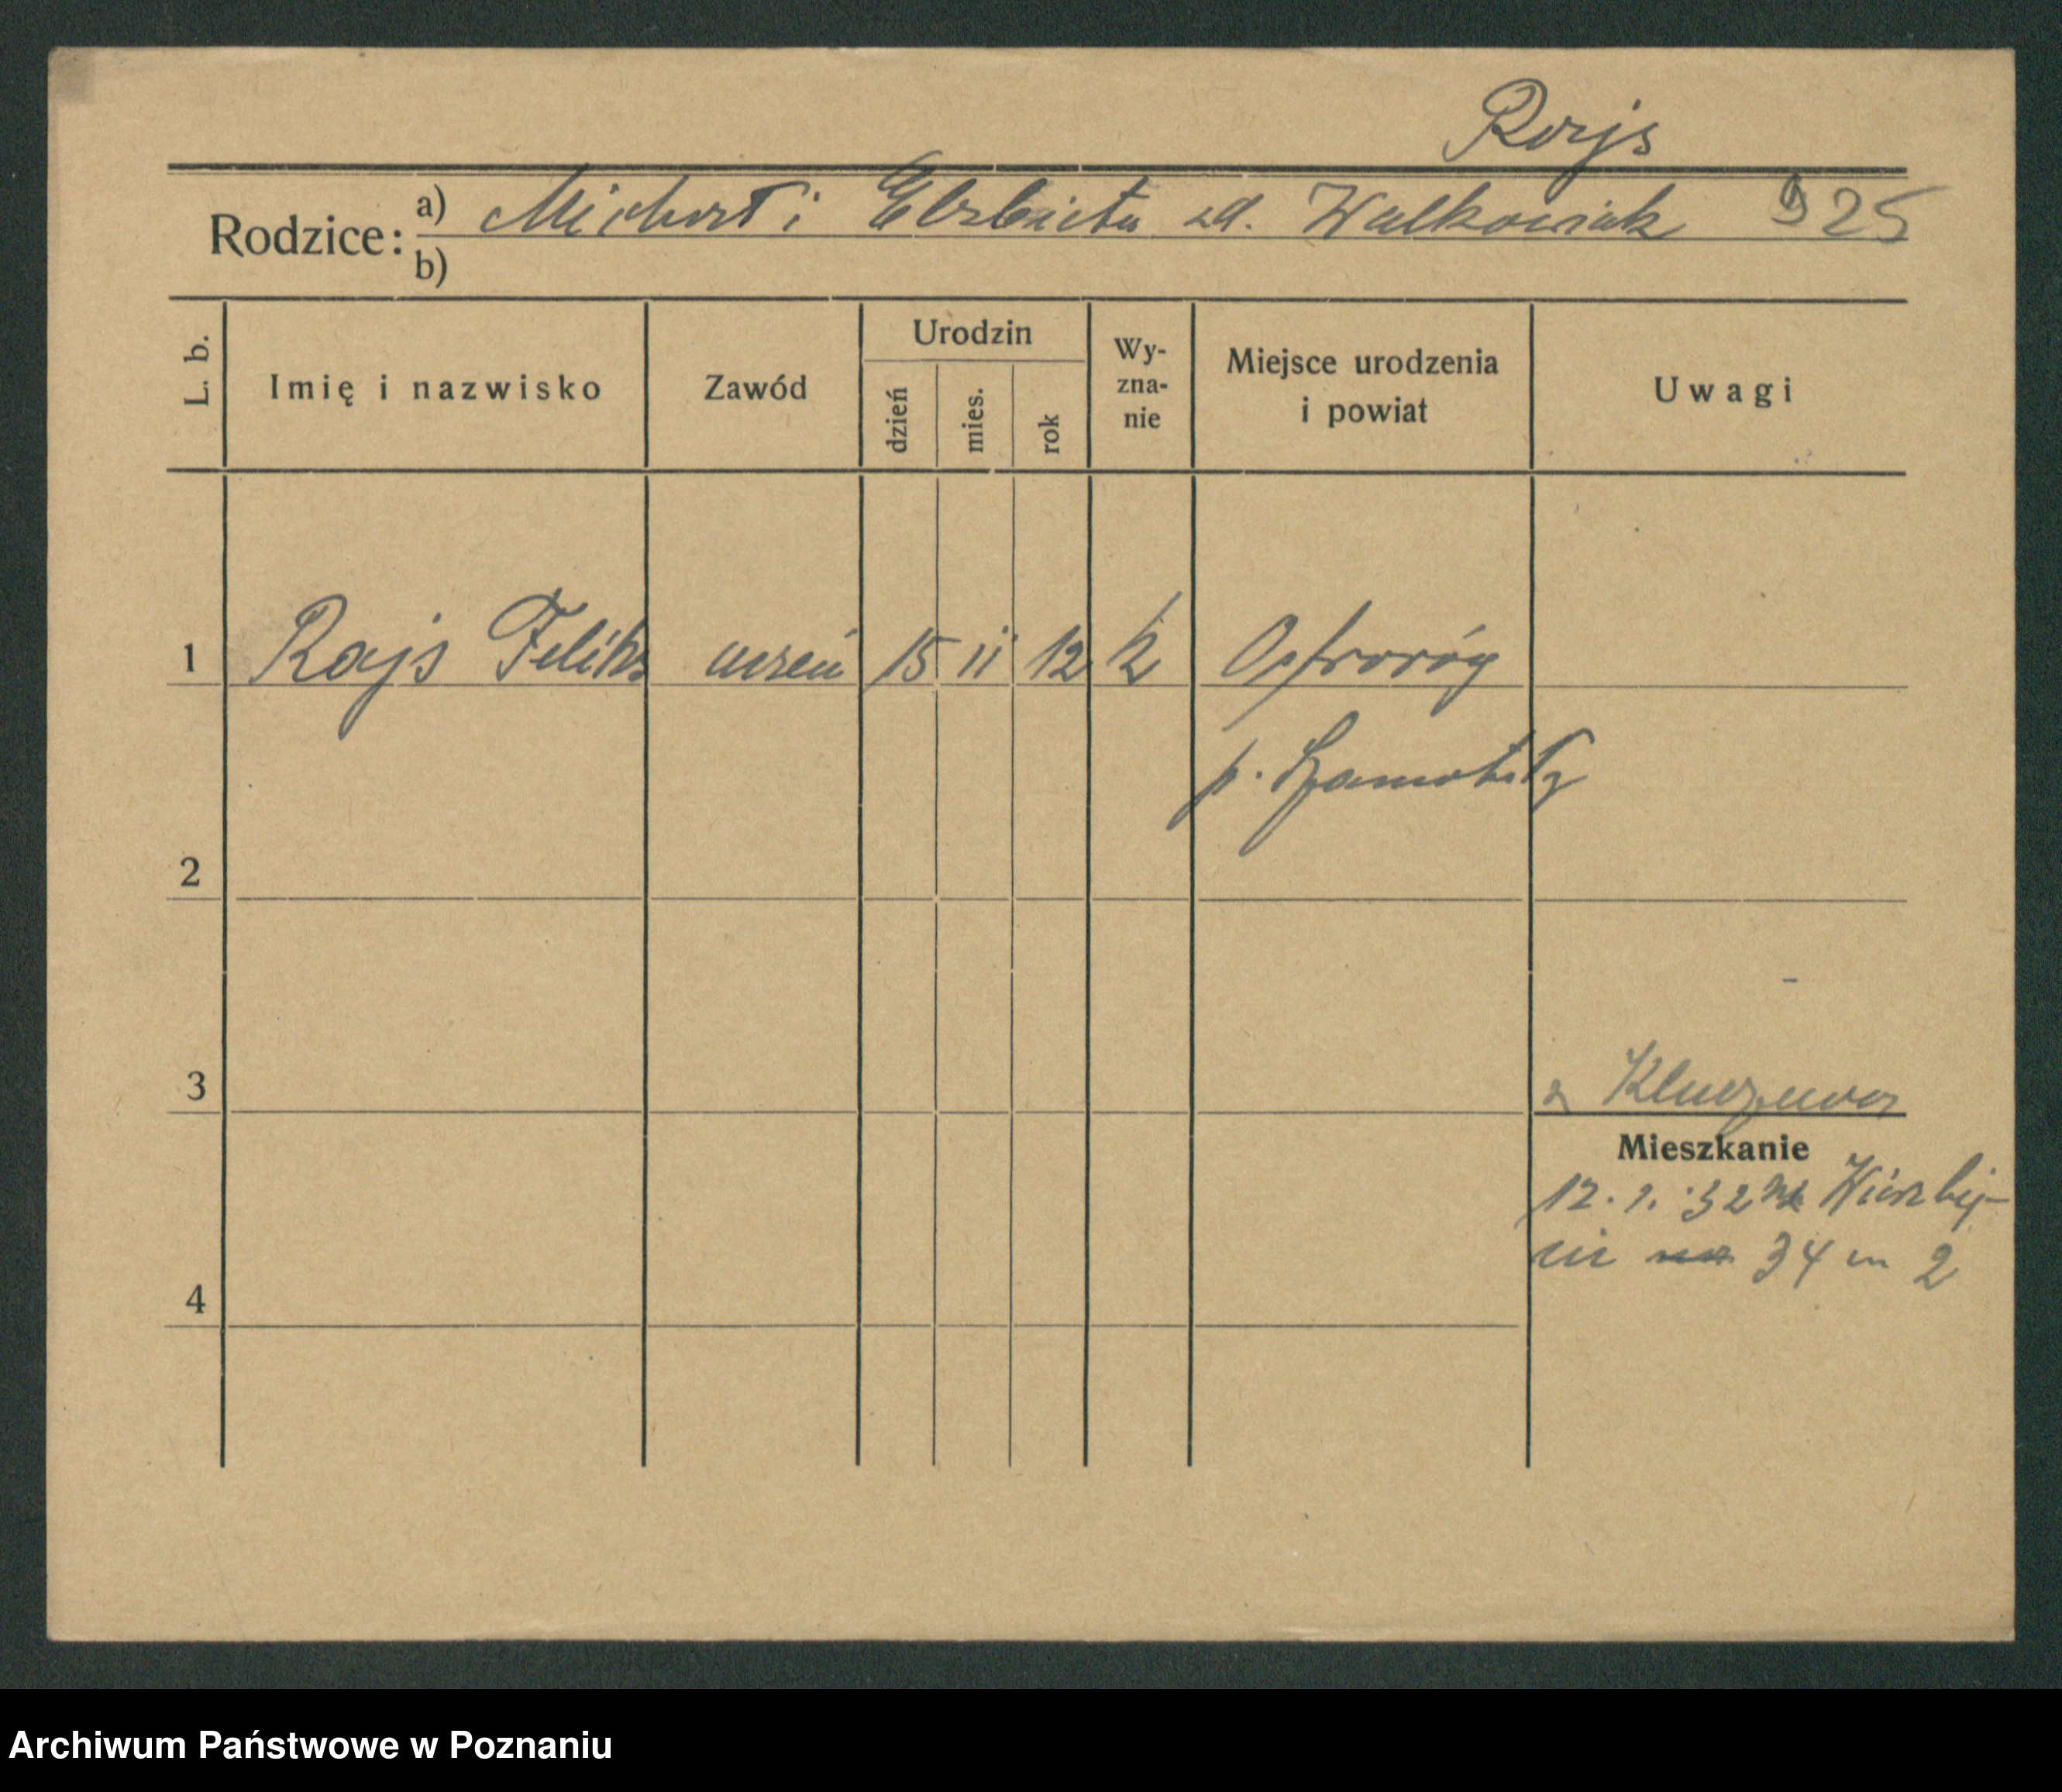 Rajs
Rodzice: a) Michał i Elżbieta zd. Walkowiak 925
b)
L. b. Imię i nazwisko Zawód Urodzin dzień mies. rok Wy-zna-nie Miejsce urodzenia i powiat Uwagi
1 Rajs Feliks uczeń 15 11 12 k Ostroróg
p. Szamotuły
2
3 z Kluczewa
Mieszkanie
12. 1. 32 Wierzbię-
cic 34 m 2
4
Archiwum Państwowe w Poznaniu